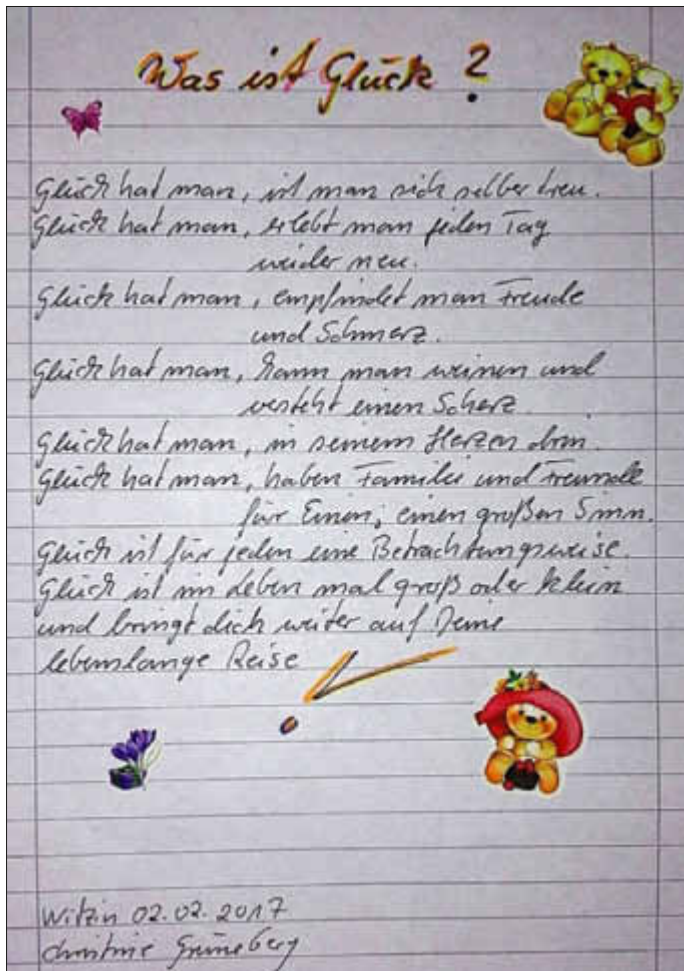 Was ist Glück ?
Glück hat man, ist man sich selber treu.
Glück hat man, erlebt man jeden Tag
wieder neu.
Glück hat man, empfindet man Freude
und Schmerz.
Glück hat man, kann man weinen und
versteht einen Scherz.
Glück hat man, in seinem Herzen drin.
Glück hat man, haben Familie und Freunde
für Einen, einen großen Sinn.
Glück ist für jeden eine Betrachtungsweise.
Glück ist im Leben mal groß oder klein
und bringt dich weiter auf Deine
lebenslange Reise !
Witzin 02.02.2017
Christine Grüneberg